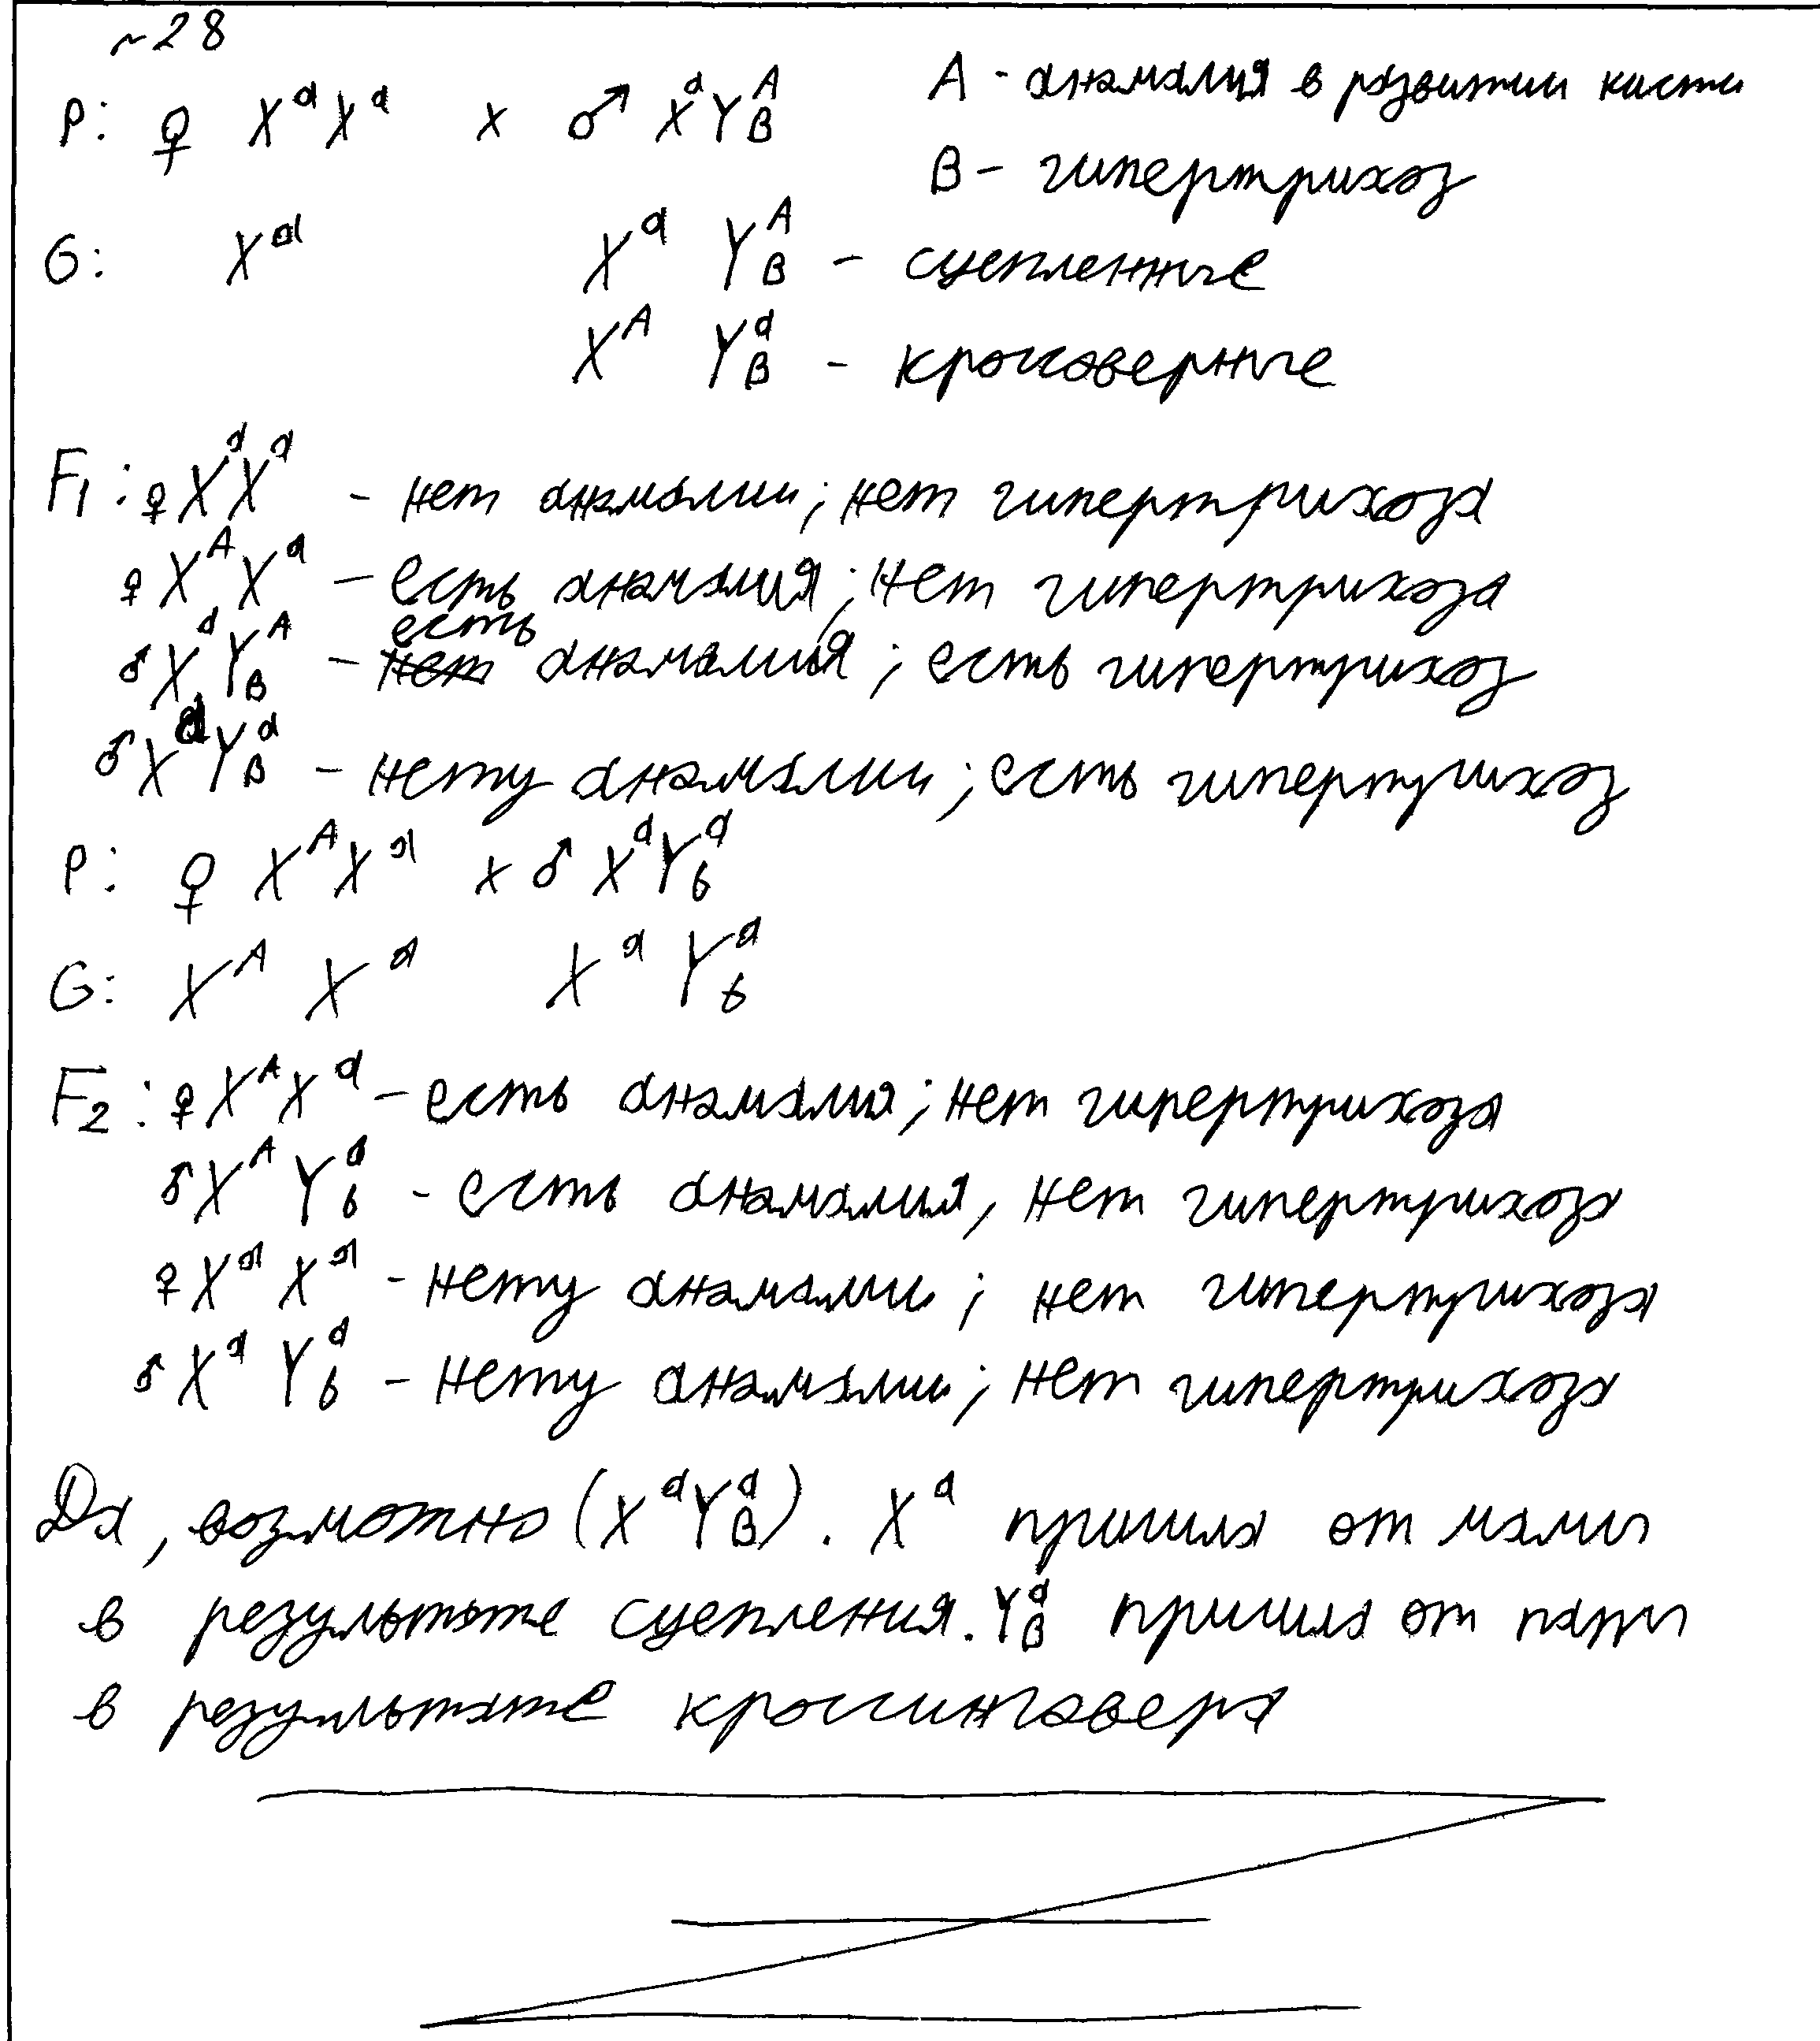 ~28
P: ♀ XᵃXᵃ x ♂ XᵃY_B^A A - анамалия в развитии кисти
B - гипертрихоз
G: Xᵃ Xᵃ Y_B^A - сцепленные
X^A Y_B^a - кроссоверные
F₁: ♀ XᵃXᵃ - нет анамалии; нет гипертрихоза
♀ X^A Xᵃ - есть анамалия; нет гипертрихоза
♂ Xᵃ Y_B^A - есть анамалия; есть гипертрихоз
♂ Xᵃ Y_B^a - нету анамалии; есть гипертрихоз
P: ♀ X^A Xᵃ x ♂ Xᵃ Y_b^a
G: X^A Xᵃ Xᵃ Y_b^a
F₂: ♀ X^A Xᵃ - есть анамалия; нет гипертрихоза
♂ X^A Y_b^a - есть анамалия, нет гипертрихоза
♀ Xᵃ Xᵃ - нету анамалии; нет гипертрихоза
♂ Xᵃ Y_b^a - нету анамалии; нет гипертрихоза
Да, возможно (Xᵃ Y_B^a). Xᵃ пришла от мамы
в результате сцепления. Y_B^a пришла от папы
в результате кроссинговера